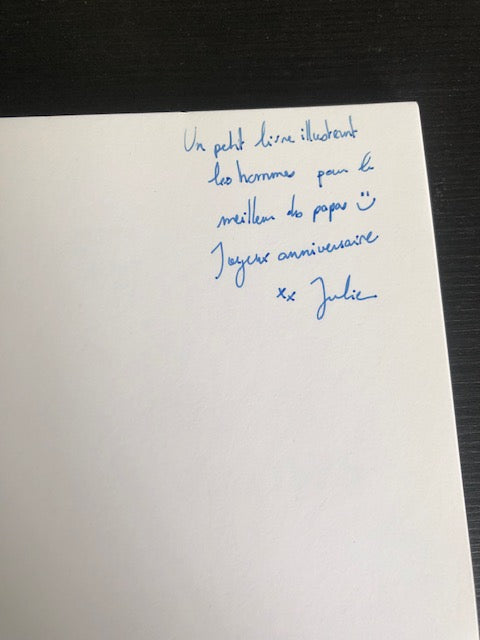 Un petit livre illustrant
les hommes pour le
meilleur des papas :)
Joyeux anniversaire
xx Julie